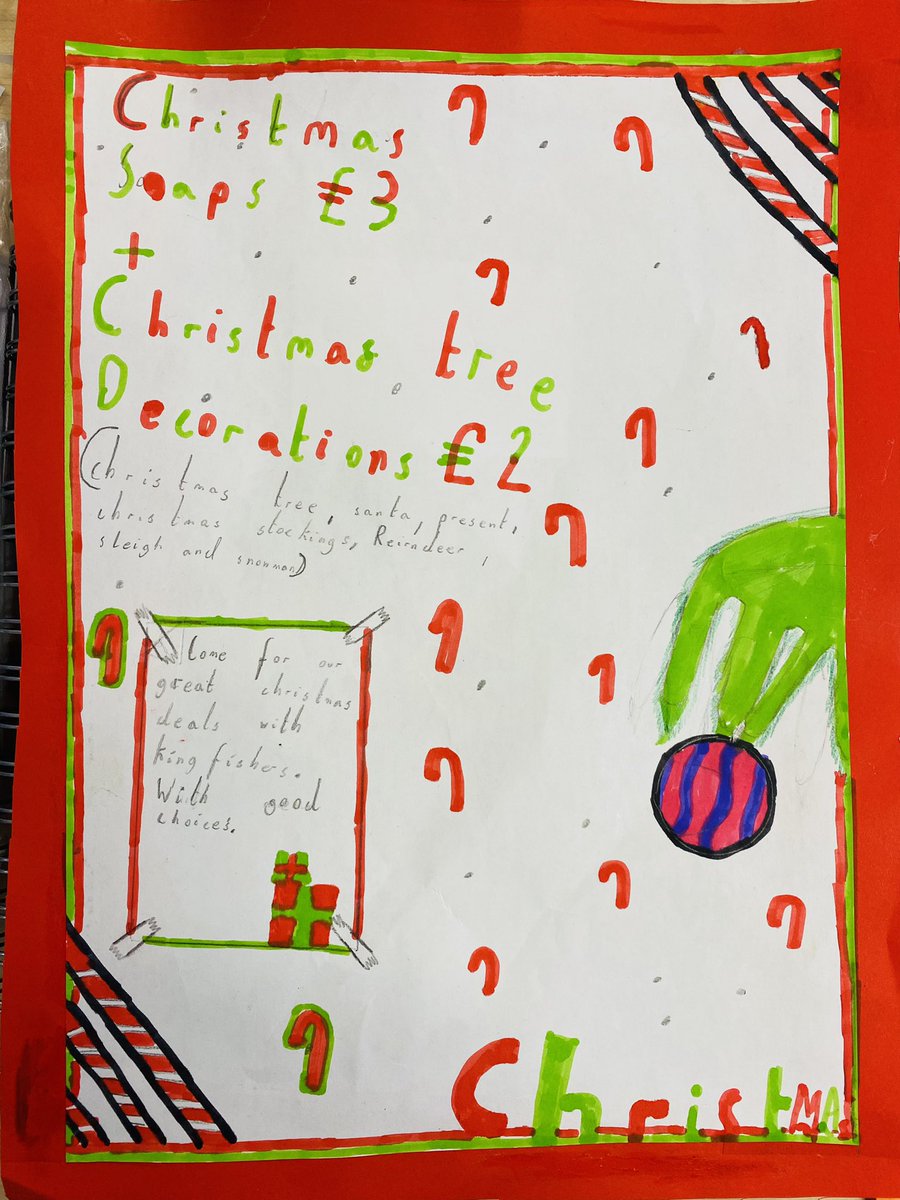 Christmas
Soaps £3
+
Christmas tree
Decorations £2
(Christmas tree, santa, present,
christmas stockings, Reirndeer,
sleigh and snowman)
Come for our
great christmas
deals with
king fishers.
With good
choices.
Christmas